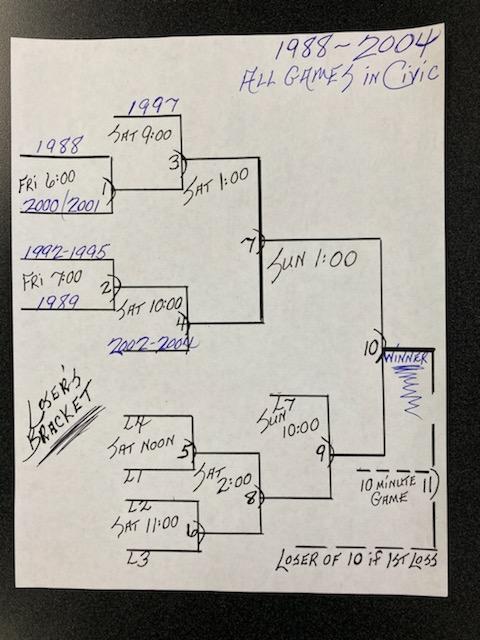 1988~2004
ALL GAMES in Civic
1997
SAT 9:00
3
1988
FRI 6:00
1
2000/2001
SAT 1:00
7
SUN 1:00
1992-1995
FRI 7:00
2
1989
SAT 10:00
4
2002-2004
10
WINNER
LOSER'S
BRACKET
L7
SUN
10:00
9
L4
SAT NOON
5
L1
SAT
2:00
8
L2
SAT 11:00
6
L3
10 MINUTE
GAME
11
LOSER OF 10 if 1ST LOSS